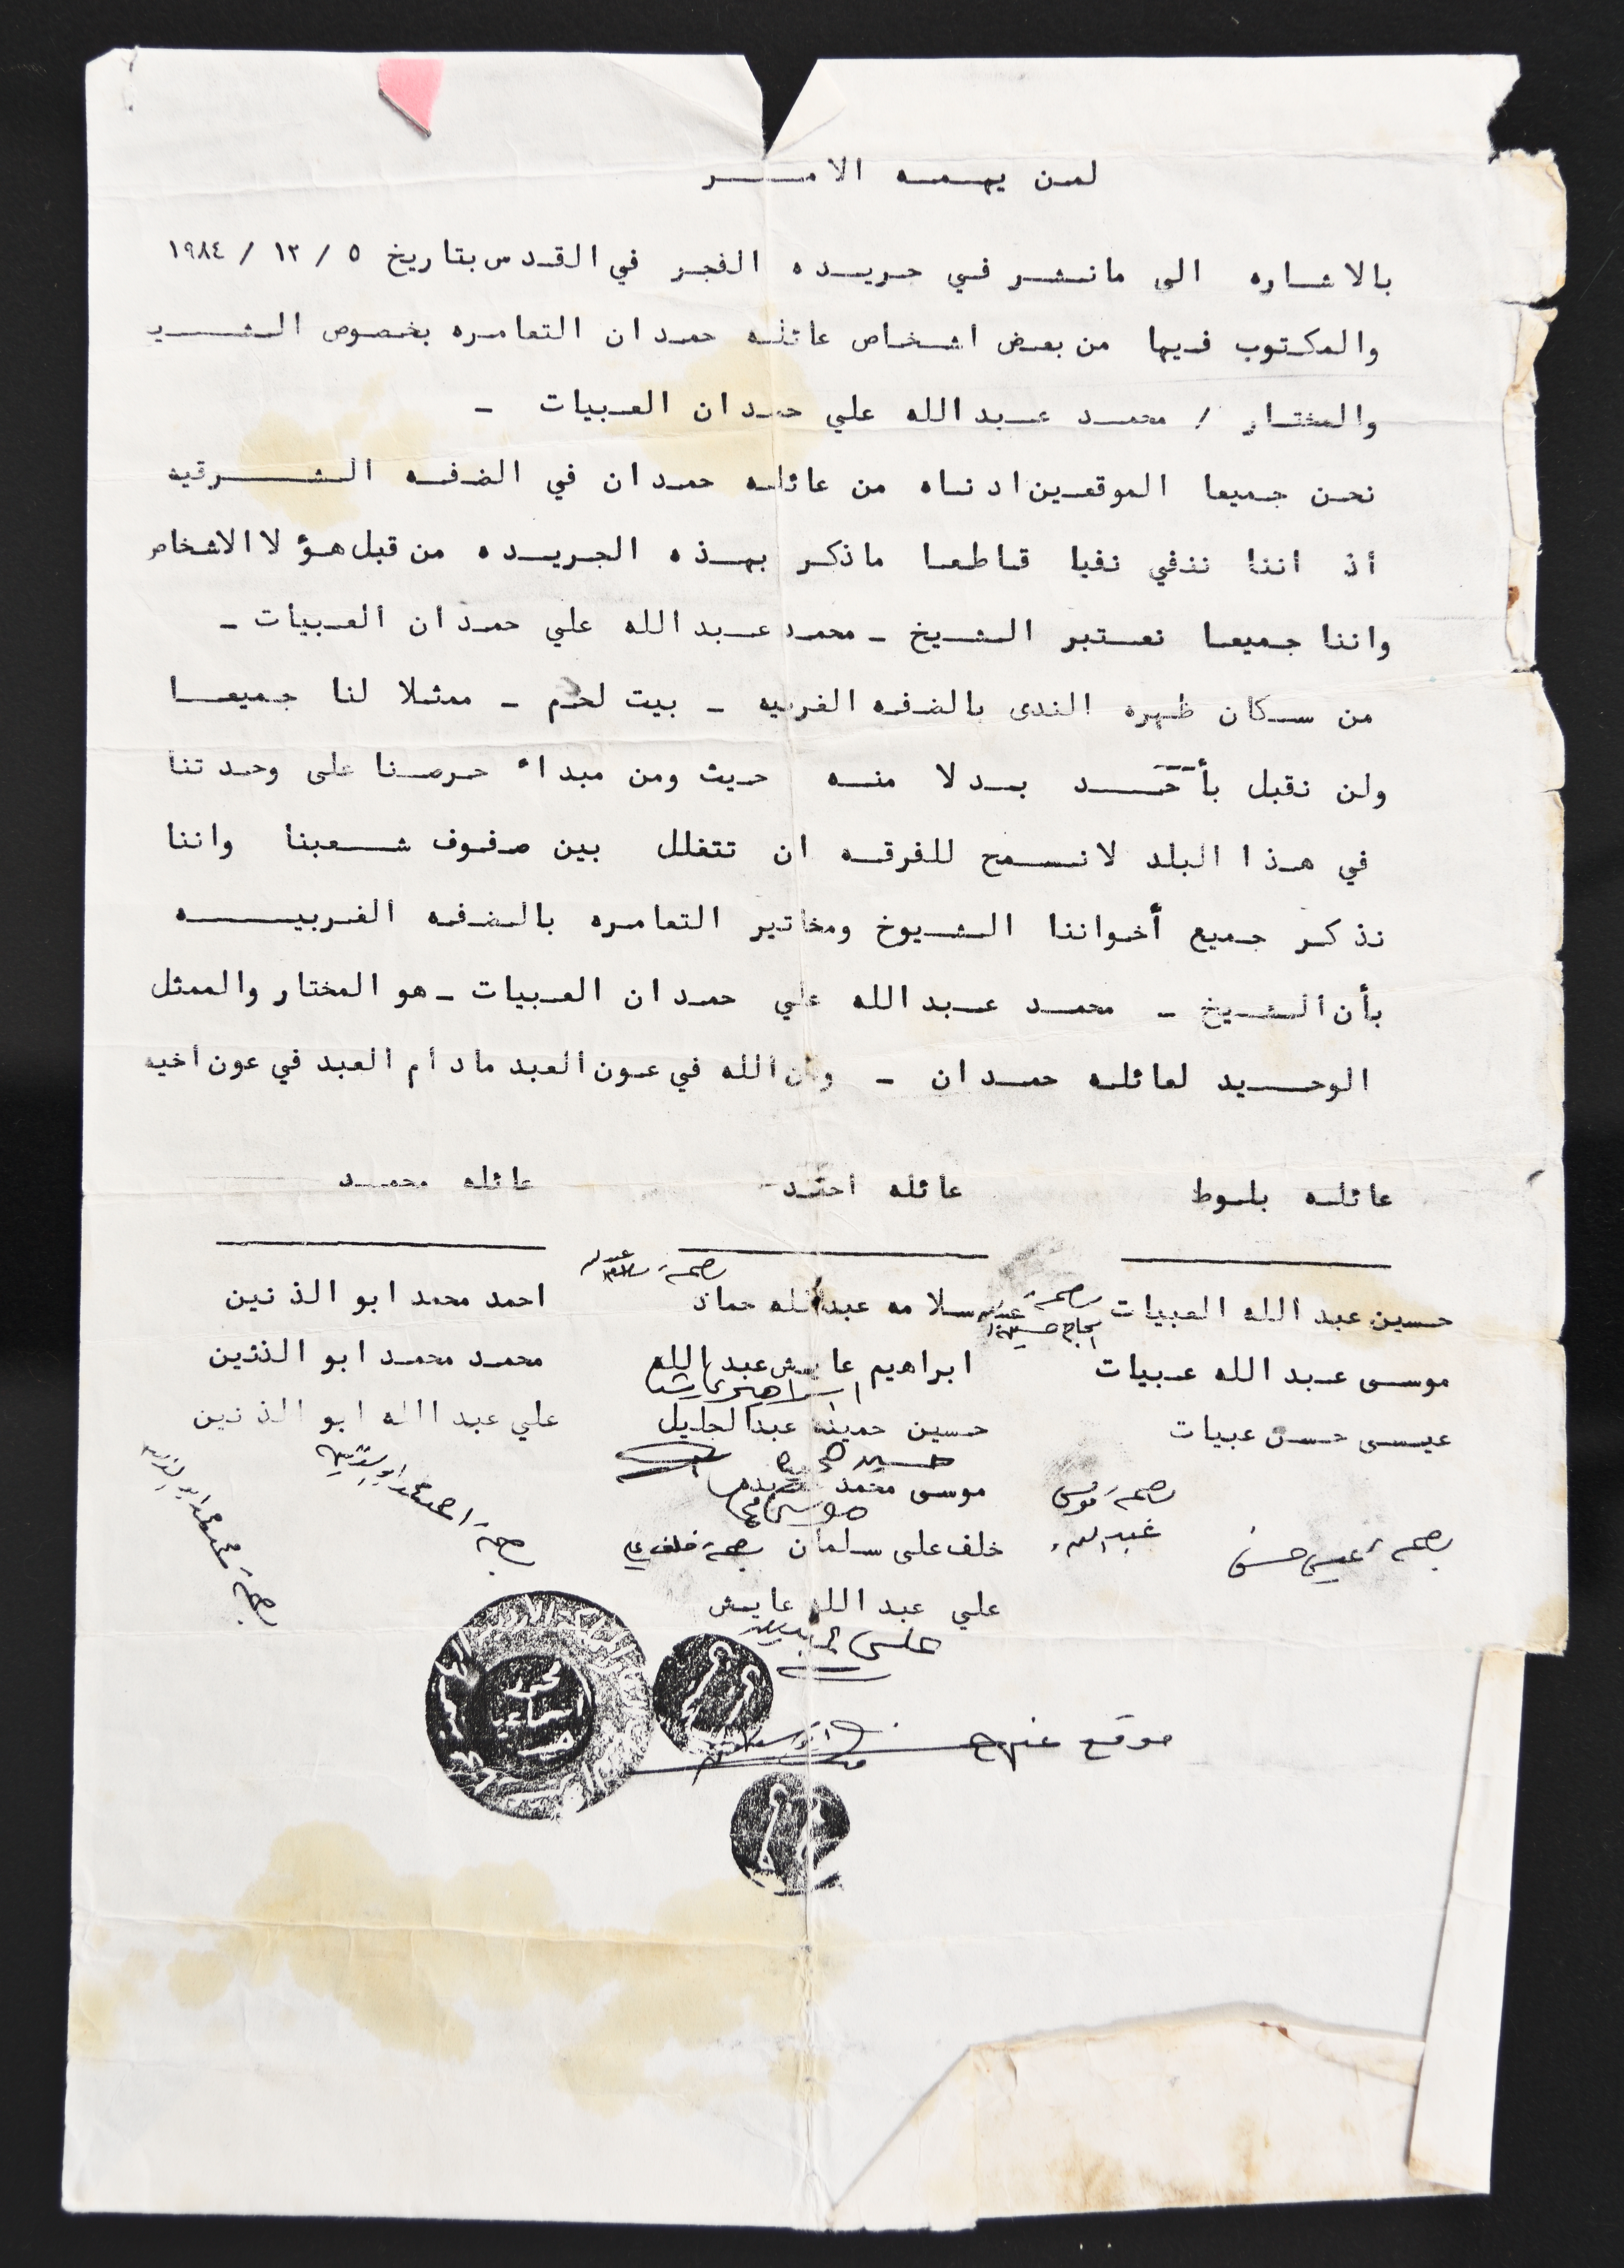 لمن يهمه الامر
بالاشاره الى مانشر في جريده الفجر في القدس بتاريخ ٥ / ١٢ / ١٩٨٤
والمكتوب فيها من بعض اشخاص عائله حمدان التعامره بخصوص الشيخ
والمختار / محمد عبدالله علي حمدان العبيات -
نحن جميعا الموقعين ادناه من عائله حمدان في الضفه الشرقيه
أذ اننا ننفي نفيا قاطعا ماذكر بهذه الجريده من قبل هؤلا الاشخاص
واننا جميعا نعتبر الشيخ - محمد عبدالله علي حمدان العبيات -
من سكان ظهره الندى بالضفه الغربيه - بيت لحم - ممثلا لنا جميعا
ولن نقبل بأحد بدلا منه حيث ومن مبداء حرصنا على وحدتنا
في هذا البلد لانسمح للفرقه ان تتغلل بين صفوف شعبنا واننا
نذكر جميع أخواننا الشيوخ ومخاتير التعامره بالضفه الغربيه
بأن الشيخ - محمد عبدالله علي حمدان العبيات - هو المختار والممثل
الوحيد لعائله حمدان - وان الله في عون العبد مادام العبد في عون اخيه
عائله بلوط عائله احمد عائله محمد
بصمة
حسين عبد الله العبيات بصمة الحاج حسين سلامه عبدالله حماد احمد محمد ابو الذنين
موسى عبد الله عبيات ابراهيم عايش عبدالله محمد محمد ابو الذنين
ابراهيم عايش
عيسى حسن عبيات حسين حمينه عبدالجليل علي عبدالله ابو الذنين
موسى محمد
بصمة موسى عبدالله
بصمة عيسى حسن
خلف على سلمان بصمة خلف علي
بصمة احمد محمد
بصمة محمد محمد
علي عبد الله عايش
علي عبدالله
موقع عنهم
محمد